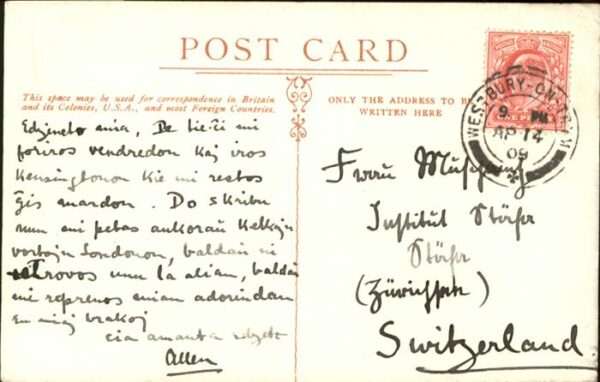 POST CARD
This space may be used for correspondence in Britain
and its Colonies, U.S.A., and most Foreign Countries.
ONLY THE ADDRESS TO BE
WRITTEN HERE
WESTBURY-ON-TRYM
9 PM
AP 14
09
Edzineto mia, De tie ĉi mi
foriros vendredon kaj iros
Kensingtonon kie mi restos
ĝis mardon. Do skribu
mi petas ankoraŭ kelkajn
vortojn Londonon, baldaŭ ni
trovos unu la alian, baldaŭ
mi reprenos mian adorindan
en miaj brakoj
cia amanta edzeto
Allen
Frau
Institut Stäfa
Stäfa
(Zürichsee)
Switzerland